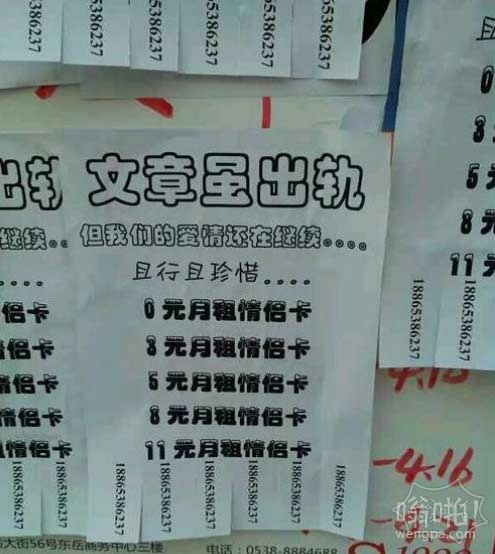 18865386237
18865386237
18865386237
18865386237
18865386237
18865386237
出轨
继续。。
侣卡
侣卡
侣卡
情侣卡
租情侣卡
18865386237
18865386237
文章虽出轨
但我们的爱情还在继续。。。。
且行且珍惜....
0 元月租情侣卡
3 元月租情侣卡
5 元月租情侣卡
8 元月租情侣卡
11 元月租情侣卡
18865386237
18865386237
18865386237
18865386237
18865386237
且
0
3
5
8
11
18865386237
18865386237
18865386237
18865386237
-4.16
大街56号东岳商务中心三楼
电话：0538-8884688
嗡啪
wengpa.com